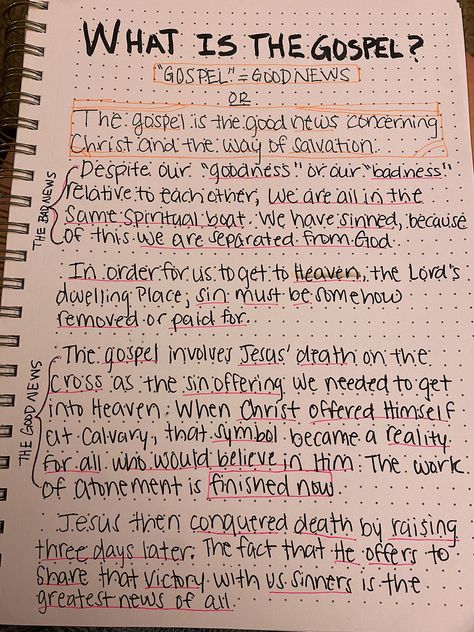 WHAT IS THE GOSPEL?
"GOSPEL" = GOOD NEWS
OR
The gospel is the good news concerning
Christ and the way of salvation.
THE BAD NEWS
Despite our "goodness" or our "badness"
relative to each other, we are all in the
same spiritual boat. We have sinned, because
of this we are separated from God.
In order for us to get to Heaven, the Lord's
dwelling place, sin must be somehow
removed or paid for.
THE GOOD NEWS
The gospel involves Jesus' death on the
cross as the sin offering we needed to get
into Heaven. When Christ offered Himself
at Calvary, that symbol became a reality
for all who would believe in Him. The work
of atonement is finished now.
Jesus then conquered death by raising
three days later. The fact that He offers to
share that victory with us sinners is the
greatest news of all.